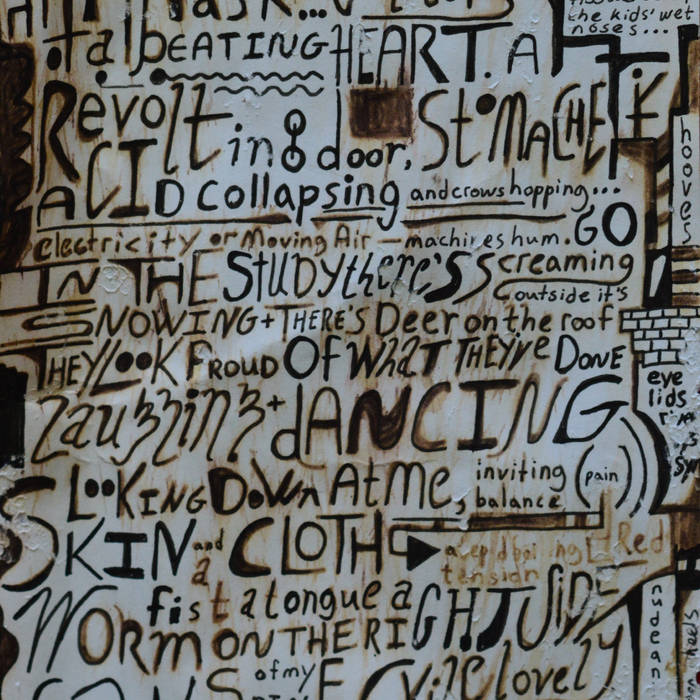 the kids' wet
noses...
beating HEART. A
Revolt in door, StomacHE
ACID collapsing and crows hopping...
electricity or Moving Air — machines hum. GO
IN THE STUDY there's Screaming
outside it's
SNOWING + THERE'S Deer on the roof
THEY LooK PROUD OF WhaT THEY'Ve DONE
Laughing + dANCING
LooKING DoWn At ME,
inviting
balance
(pain)
SKIN and CLOTH
a
Red
tension
fist a tongue a
WORM ON THE RIGHT SIDE
of my
lovely
hooves
eye
lids
nudean